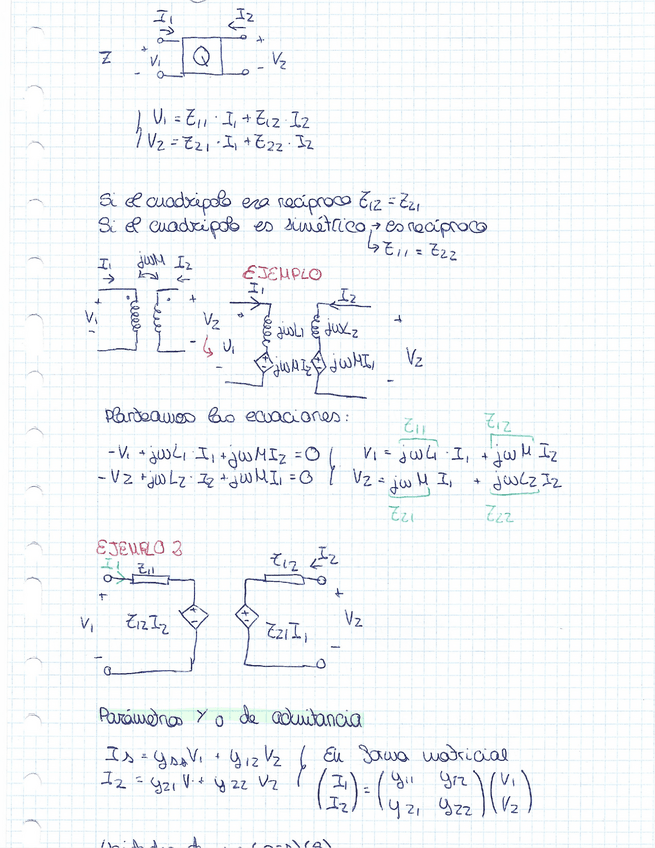 I1 I2
Z + V1 - Q + - V2
V1 = Z11 · I1 + Z12 · I2
V2 = Z21 · I1 + Z22 · I2
Si el cuadripolo era recíproco Z12 = Z21
Si el cuadripolo es simétrico → es recíproco
↳ Z11 = Z22
EJEMPLO
I1 jωM I2
I1 I2
+ V1 - + V2 -
V1 jωL1 jωL2 + V2 -
jωMI2 jωMI1
Planteamos las ecuaciones:
Z11 Z12
-V1 + jωL1 · I1 + jωMI2 = 0 V1 = jωL1 · I1 + jωM I2
-V2 + jωL2 · I2 + jωMI1 = 0 V2 = jωM I1 + jωL2 I2
Z21 Z22
EJEMPLO 2
I1 Z11 Z12 I2
+ V1 - Z12I2 Z21I1 + V2 -
Parámetros Y o de admitancia
I1 = y11V1 + y12V2 En forma matricial
I2 = y21 V1 + y22 V2 (I1 I2) = (y11 y12 y21 y22)(V1 V2)